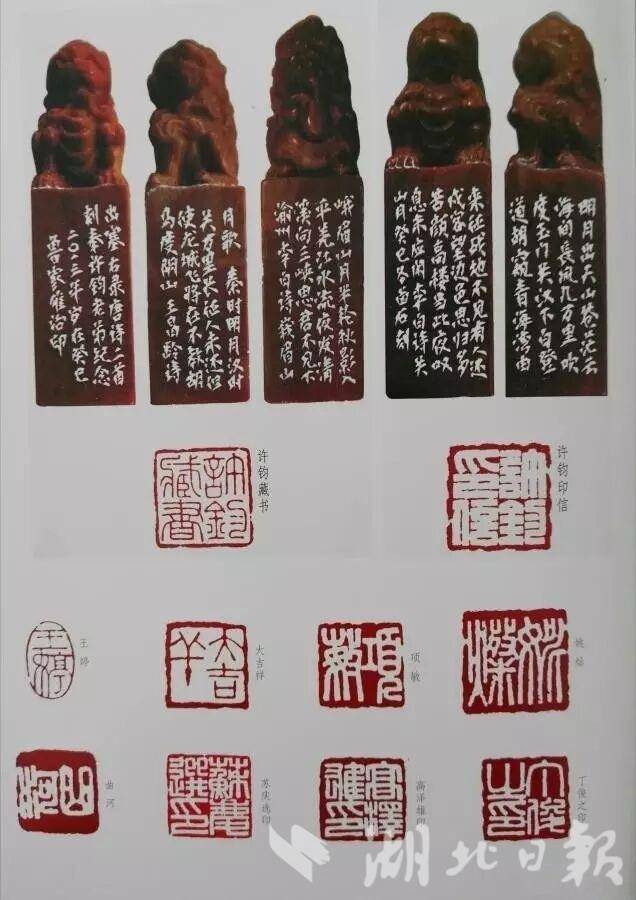 明月出天山苍茫云
海间长风几万里吹
度玉门关汉下白登
道胡窥青海湾由
来征战地不见有人还
戍客望边色思归多
苦颜高楼当此夜叹
息未应闲 李白诗关
山月癸巳冬 石刻
峨眉山月半轮秋影入
平羌江水流夜发清
溪向三峡思君不见下
渝州 李白诗峨眉山
月歌 秦时明月汉时
关万里长征人未还但
使龙城飞将在不教胡
马度阴山 王昌龄诗
出塞 唐诗二首
刻奉许钧老弟纪念
二〇一三年岁在癸巳
治印
許鈞藏書
许钧藏书
許鈞印信
许钧印信
王婷
王婷
大吉羊
大吉祥
項敏
项敏
姚燦
姚灿
曲河
曲河
蘇慶選印
苏庆选印
高澤雄印
高泽雄印
丁俊之印
丁俊之印
湖北日报